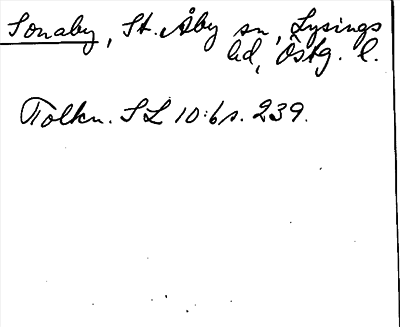 Sonaby, St. Åby sn, Lysings
hd, Östg. l.
Tolkn. SL 10:6 s. 239.